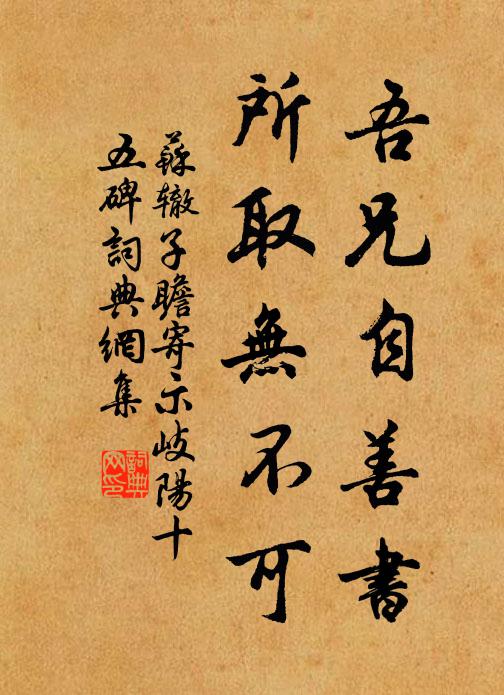 吾兄自善書
所取無不可
蘇辙子瞻寄示岐陽十
五碑詞典網集
詞典
网印